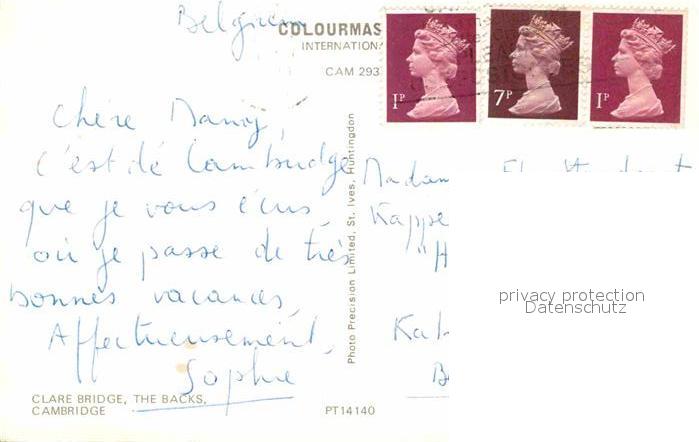 Belgium
COLOURMAS
INTERNATION
CAM 293
1P
7P
1P
Chère
c'est de Cambridge
que je vous écris,
où je passe de très
bonnes vacances,
Affectueusement,
Sophie
CLARE BRIDGE, THE BACKS,
CAMBRIDGE
PT14140
Photo Precision Limited, St. Ives, Huntingdon
Madam
Kappe
"H
Kal
B
privacy protection
Datenschutz